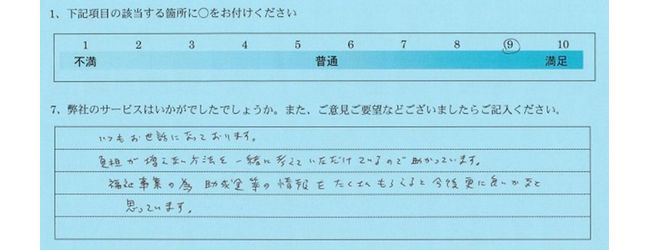 1、下記項目の該当する箇所に○をお付けください
1 2 3 4 5 6 7 8 9 10
不満 普通 満足
7、弊社のサービスはいかがでしたでしょうか。また、ご意見ご要望などございましたらご記入ください。
いつもお世話になっております。
負担が増えない方法を一緒に考えていただけているので助かっています。
福祉事業の為 助成金等の情報をたくさんもらえると今後更に良いかなと
思っています。